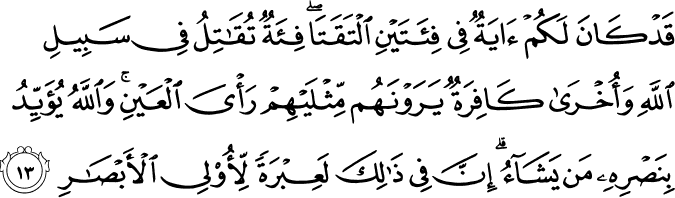 قَدْ كَانَ لَكُمْ ءَايَةٌ فِى فِئَتَيْنِ ٱلْتَقَتَا ۖ فِئَةٌ تُقَـٰتِلُ فِى سَبِيلِ
ٱللَّهِ وَأُخْرَىٰ كَافِرَةٌ يَرَوْنَهُم مِّثْلَيْهِمْ رَأْىَ ٱلْعَيْنِ ۚ وَٱللَّهُ يُؤَيِّدُ
بِنَصْرِهِۦ مَن يَشَآءُ ۗ إِنَّ فِى ذَٰلِكَ لَعِبْرَةً لِّأُو۟لِى ٱلْأَبْصَـٰرِ ١٣